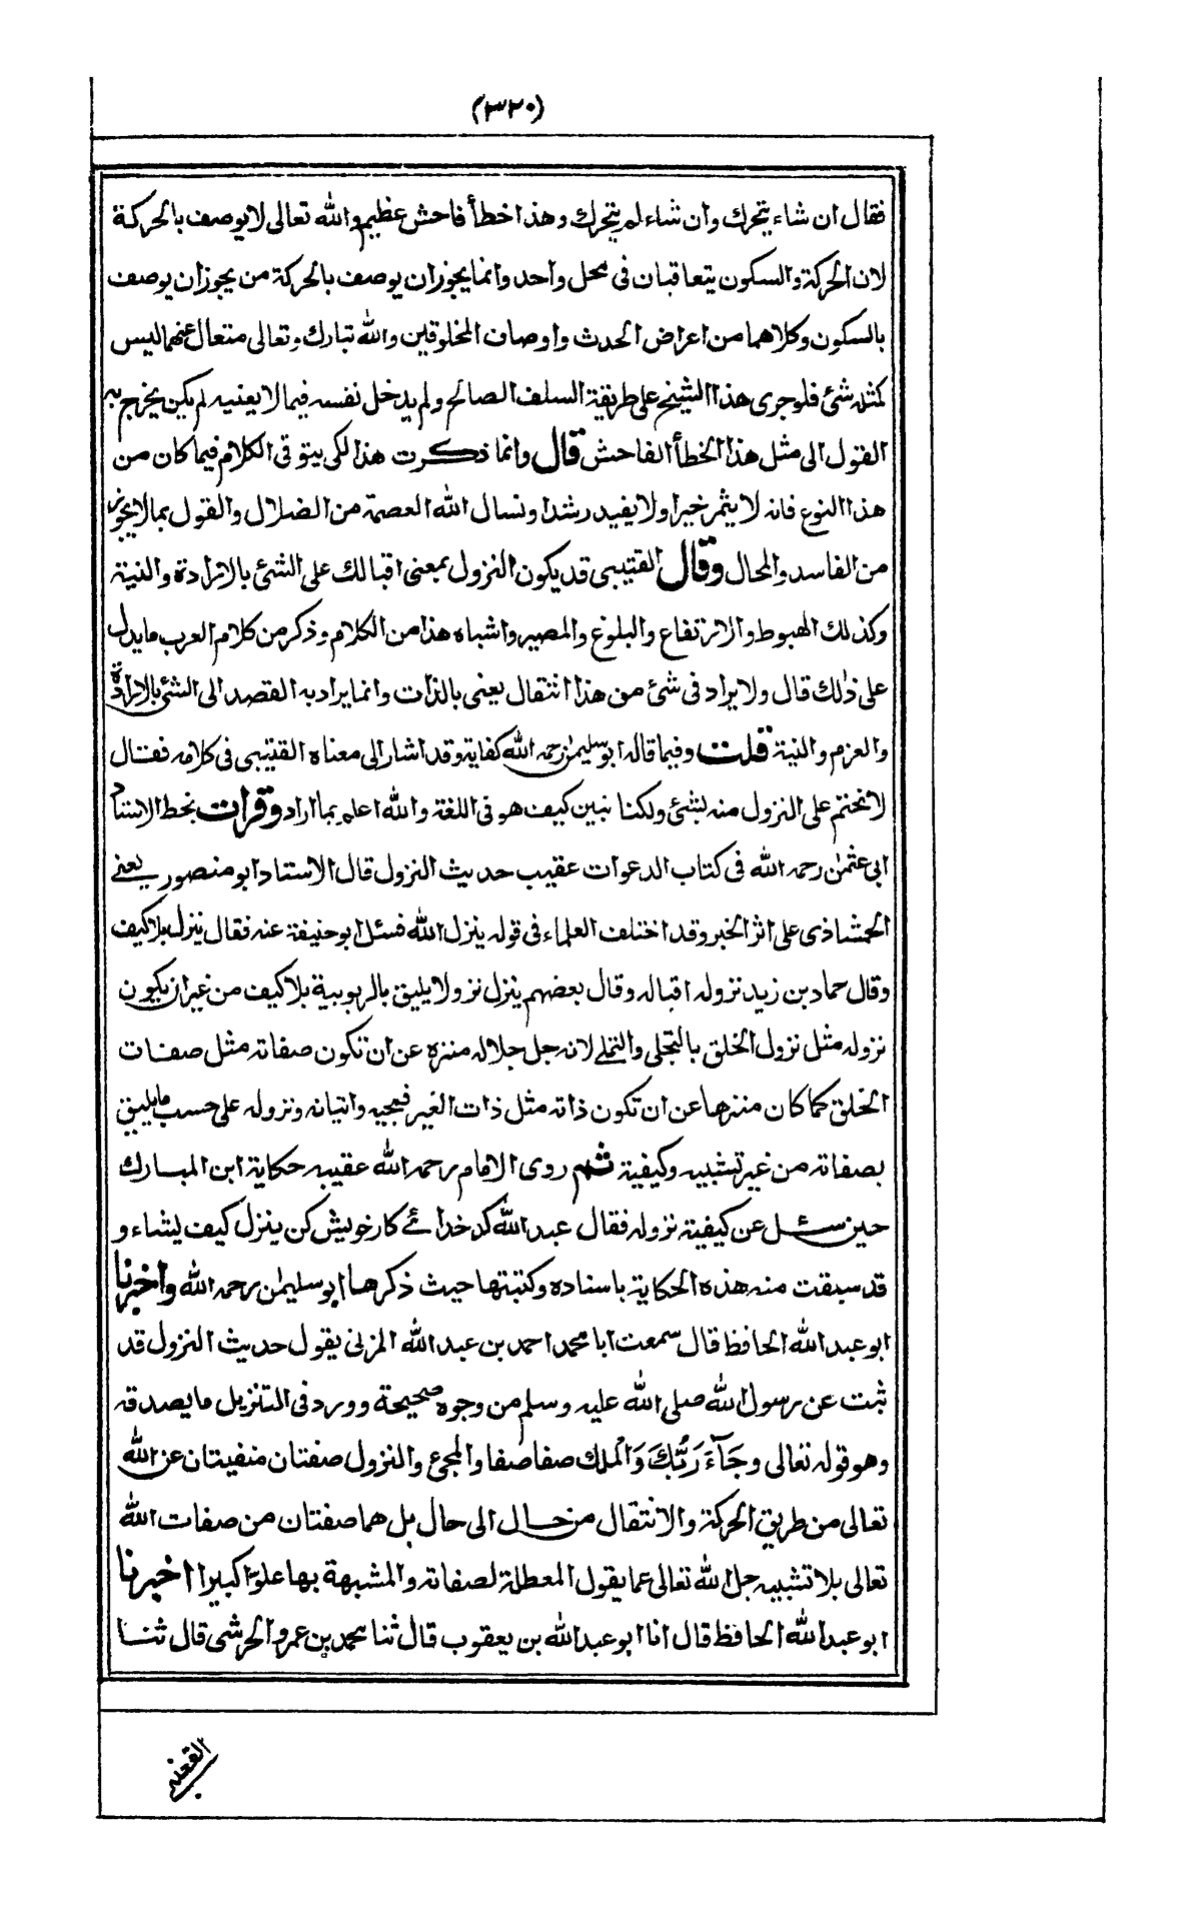 (٣٢٠)
فقال ان شاء يتحرك وان شاء لم يتحرك وهذا خطأ فاحش عظيم والله تعالى لا يوصف بالحركة
لان الحركة والسكون يتعاقبان فى محل واحد وانما يجوز ان يوصف بالحركة من يجوز ان يوصف
بالسكون وكلاهما من اعراض الحدث واوصاف المخلوقين والله تبارك وتعالى متعال عنهما ليس
كمثله شئ فلو جرى هذا الشيخ على طريقة السلف الصالح ولم يدخل نفسه فيما لا يعنيه لم يكن يخرج به
القول الى مثل هذا الخطأ الفاحش قال وانما ذكرت هذا لكى يتوقى الكلام فيما كان من
هذا النوع فانه لا يثمر خيرا ولا يفيد رشدا ونسال الله العصمة من الضلال والقول بما لا يجوز
من الفاسد والمحال وقال القتيبى قد يكون النزول بمعنى اقبالك على الشئ بالارادة والنية
وكذلك الهبوط والارتفاع والبلوغ والمصير واشباه هذا من الكلام وذكر من كلام العرب ما يدل
على ذلك قال ولا يراد فى شئ من هذا انتقال يعنى بالذات وانما يراد به القصد الى الشئ بالارادة
والعزم والنية قلت وفيما قاله ابو سليمٰن رحمه الله كفاية وقد اشار الى معناه القتيبى فى كلامه فقال
لا نحتم على النزول منه بشئ ولكنا نبين كيف هو فى اللغة والله اعلم بما اراد وقرات بخط الاستاد
ابى عثمٰن رحمه الله فى كتاب الدعوات عقيب حديث النزول قال الاستاد ابو منصور يعنے
الحمشاذى على اثر الخبر وقد اختلف العلماء فى قوله ينزل الله فسئل ابو حنيفة عنه فقال ينزل بلا كيف
وقال حماد بن زيد نزوله اقباله وقال بعضهم ينزل نزولا يليق بالربوبية بلا كيف من غير ان يكون
نزوله مثل نزول الخلق بالتجلى والتملے لانه جل جلاله منزه عن ان تكون صفاته مثل صفات
الخلق كما كان منزها عن ان تكون ذاته مثل ذات الغير فمجيه واتيانه ونزوله على حسب ما يليق
بصفاته من غير تشبيه وكيفية ثم روى الامام رحمه الله عقيبه حكاية ابن المبارك
حين سئل عن كيفية نزوله فقال عبد الله كد خدائے كار خويش كن ينزل كيف يشاء و
قد سبقت منه هذه الحكاية باسناده وكتبتها حيث ذكرها ابو سليمٰن رحمه الله واخبرنا
ابو عبد الله الحافظ قال سمعت ابا محمد احمد بن عبد الله المزنى يقول حديث النزول قد
ثبت عن رسول الله صلى الله عليه وسلم من وجوه صحيحة وورد فى التنزيل ما يصدقه
وهو قوله تعالى وجَآءَ رَبُّكَ وَالْملك صفا صفا والمجئ والنزول صفتان منفيتان عن الله
تعالى من طريق الحركة والانتقال من حال الى حال بل هما صفتان من صفات الله
تعالى بلا تشبيه جل الله تعالى عما يقول المعطلة لصفاته والمشبهة بها علوًا كبيرا اخبرنا
ابو عبد الله الحافظ قال انا ابو عبد الله بن يعقوب قال ثنا محمد بن عمرو الحرشى قال ثنا
القعنبے